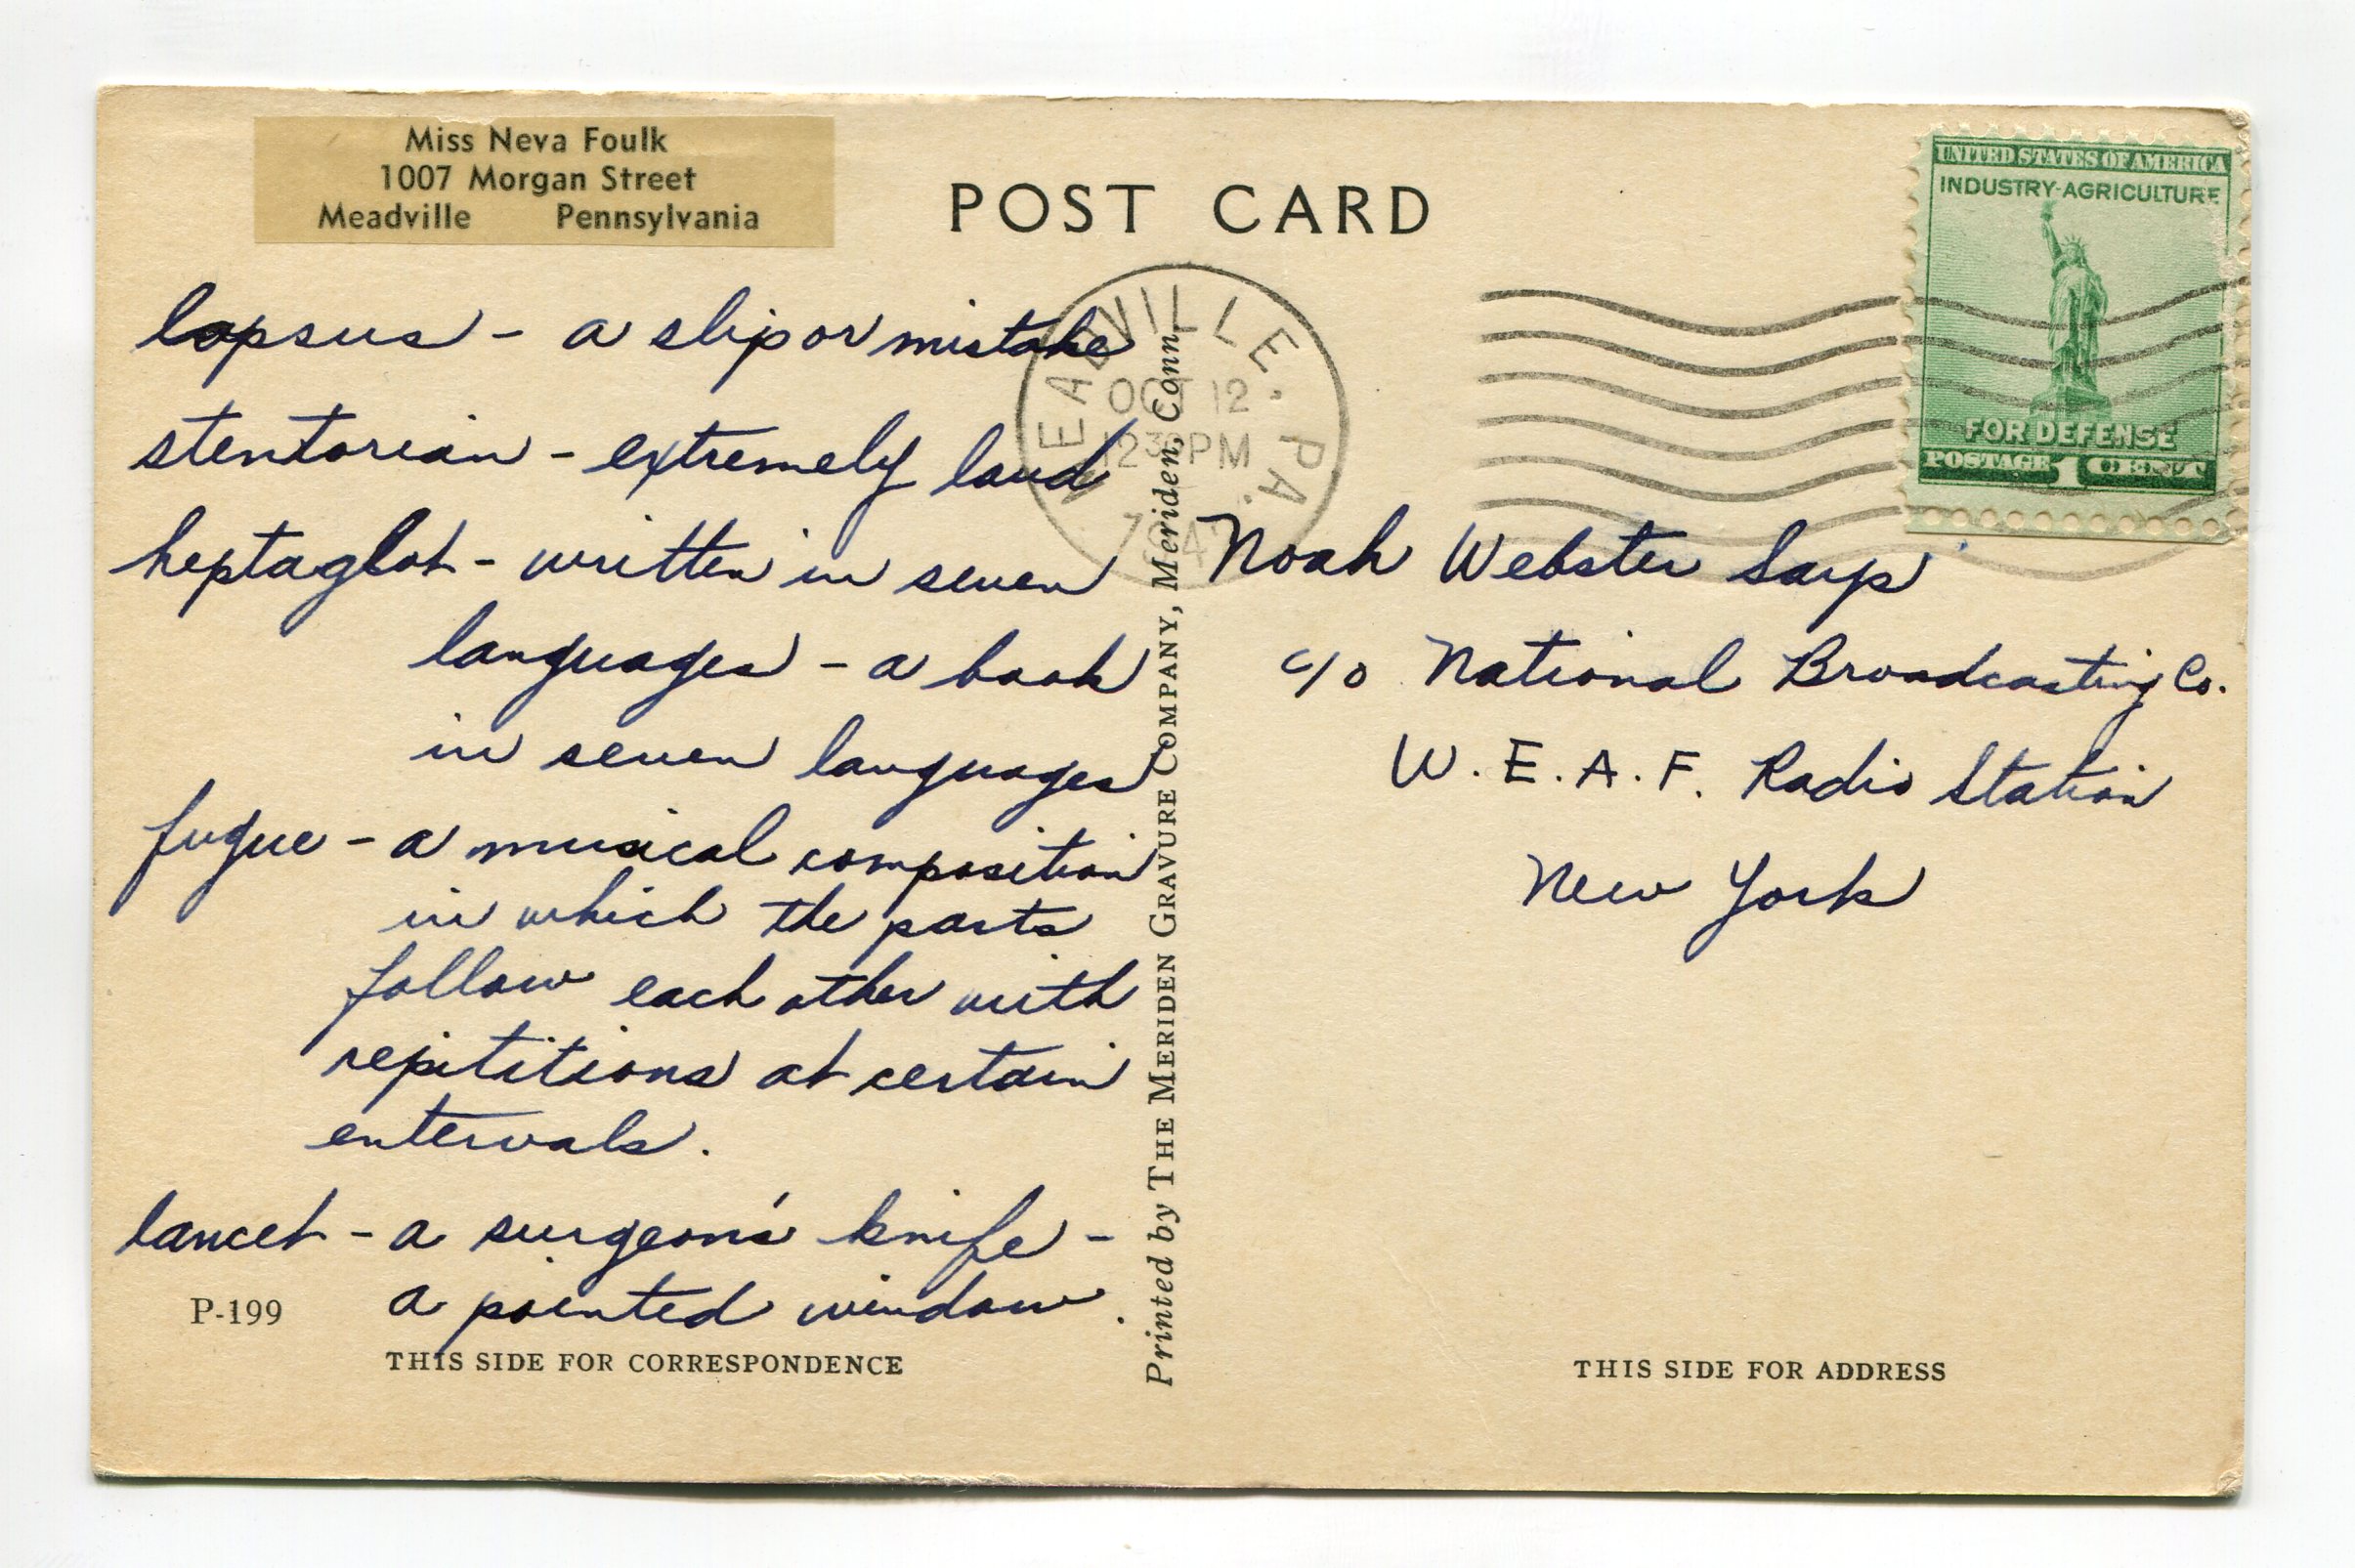 Miss Neva Foulk
1007 Morgan Street
Meadville Pennsylvania
POST CARD
UNITED STATES OF AMERICA
INDUSTRY-AGRICULTURE
FOR DEFENSE
POSTAGE 1 CENT
MEADVILLE, PA.
OCT 12
12 30 PM
lapsus - a slip or mistake
stentorian - extremely loud
heptaglot - written in seven
languages - a book
in seven languages
fugue - a musical composition
in which the parts
follow each other with
repititions at certain
entervals.
lancet - a surgeon's knife -
a pointed window.
P-199
THIS SIDE FOR CORRESPONDENCE
Printed by THE MERIDEN GRAVURE COMPANY, Meriden, Conn.
Noah Webster Says
c/o National Broadcasting Co.
W.E.A.F. Radio Station
New York
THIS SIDE FOR ADDRESS